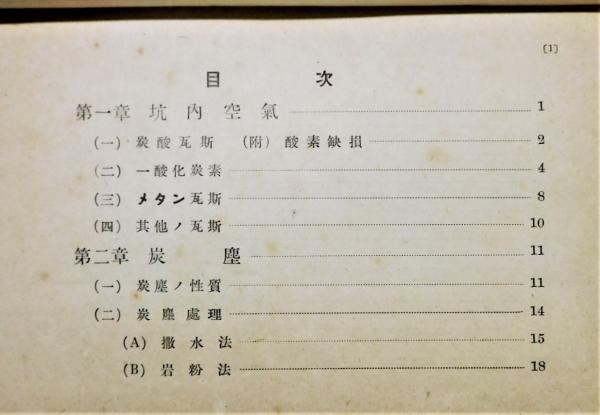 (1)
目 次
第一章 坑內空氣 1
(一) 炭酸瓦斯 (附) 酸素缺損 2
(二) 一酸化炭素 4
(三) メタン瓦斯 8
(四) 其他ノ瓦斯 10
第二章 炭塵 11
(一) 炭塵ノ性質 11
(二) 炭塵處理 14
(A) 撒水法 15
(B) 岩粉法 18